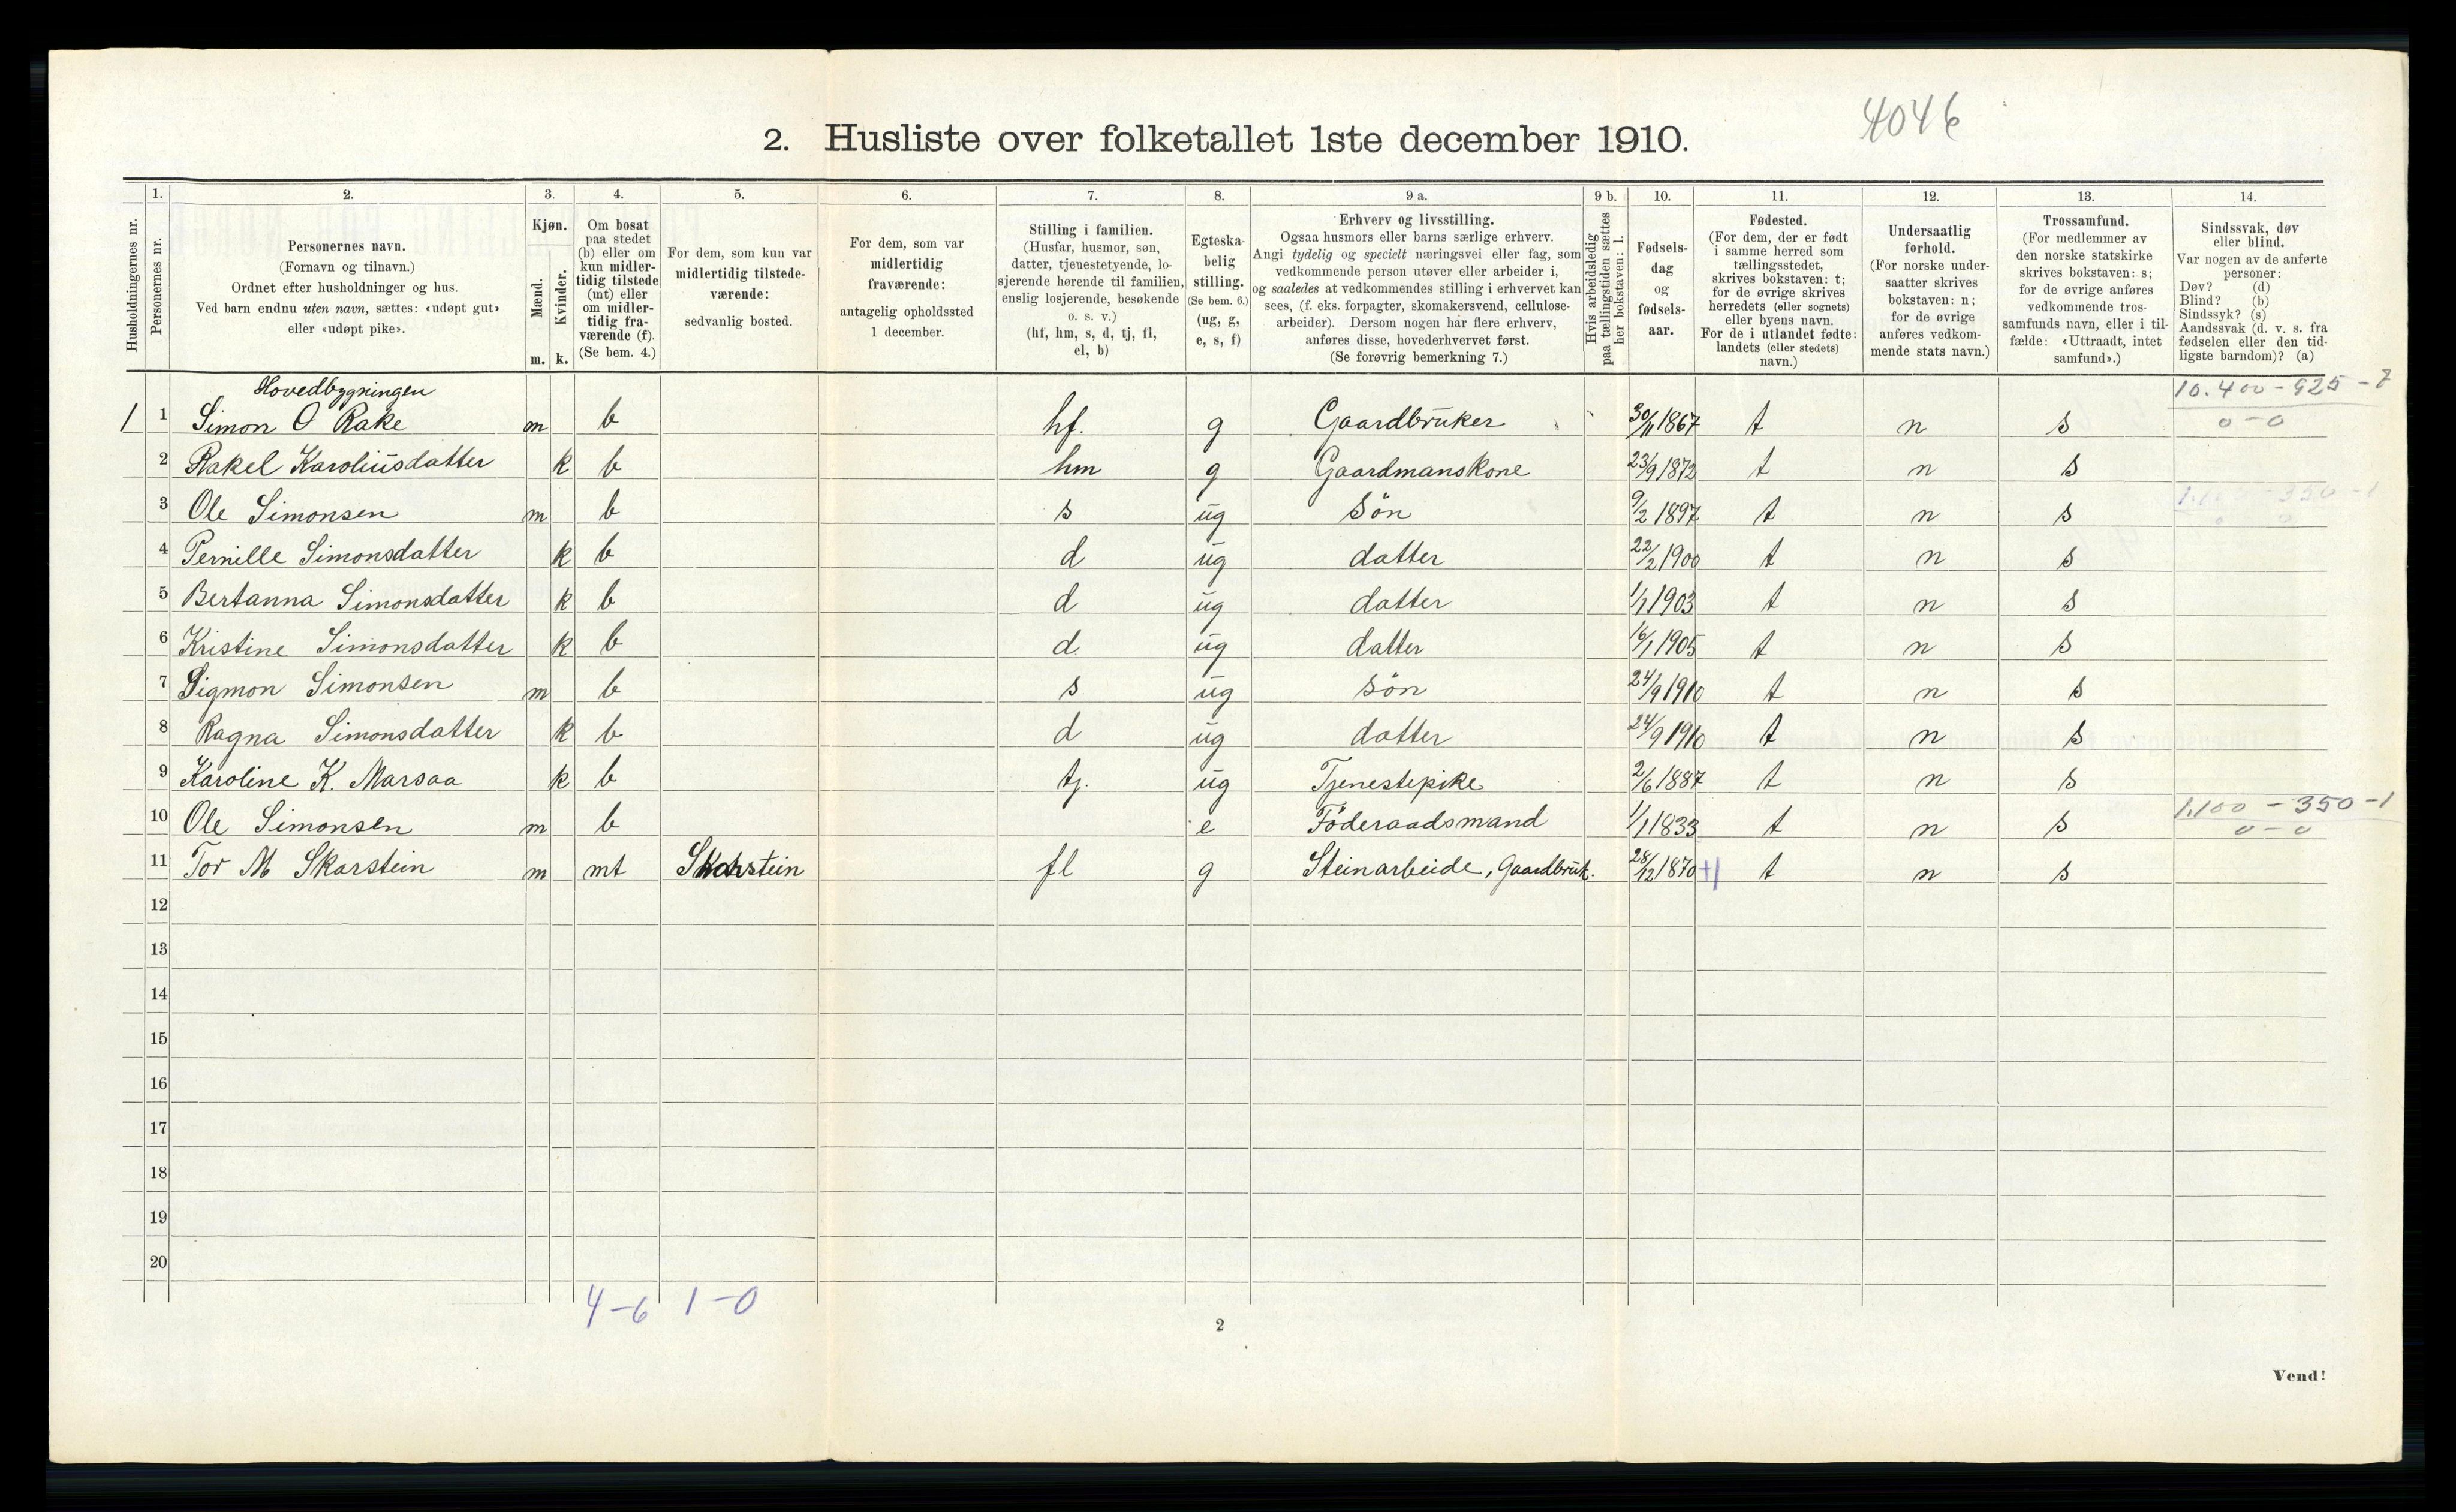 4046
2. Husliste over folketallet 1ste december 1910.
Husholdningernes nr.
1.
Personernes nr.
2.
Personernes navn.
(Fornavn og tilnavn.)
Ordnet efter husholdninger og hus.
Ved barn endnu uten navn, sættes: «udøpt gut»
eller «udøpt pike».
3.
Kjøn.
Mænd.
Kvinder.
m. k.
4.
Om bosat
paa stedet
(b) eller om
kun midler-
tidig tilstede
(mt) eller
om midler-
tidig fra-
værende (f).
(Se bem. 4.)
5.
For dem, som kun var
midlertidig tilstede-
værende:
sedvanlig bosted.
6.
For dem, som var
midlertidig
fraværende:
antagelig opholdssted
1 december.
7.
Stilling i familien.
(Husfar, husmor, søn,
datter, tjenestetyende, lo-
sjerende hørende til familien,
enslig losjerende, besøkende
o. s. v.)
(hf, hm, s, d, tj, fl,
el, b)
8.
Egteska-
belig
stilling.
(Se bem. 6.)
(ug, g,
e, s, f)
9 a.
Erhverv og livsstilling.
Ogsaa husmors eller barns særlige erhverv.
Angi tydelig og specielt næringsvei eller fag, som
vedkommende person utøver eller arbeider i,
og saaledes at vedkommendes stilling i erhvervet kan
sees, (f. eks. forpagter, skomakersvend, cellulose-
arbeider). Dersom nogen har flere erhverv,
anføres disse, hovederhvervet først.
(Se forøvrig bemerkning 7.)
9 b.
Hvis arbeidsledig
paa tællingstiden sættes
her bokstaven: l.
10.
Fødsels-
dag
og
fødsels-
aar.
11.
Fødested.
(For dem, der er født
i samme herred som
tællingsstedet,
skrives bokstaven: t;
for de øvrige skrives
herredets (eller sognets)
eller byens navn.
For de i utlandet fødte:
landets (eller stedets)
navn.)
12.
Undersaatlig
forhold.
(For norske under-
saatter skrives
bokstaven: n;
for de øvrige
anføres vedkom-
mende stats navn.)
13.
Trossamfund.
(For medlemmer av
den norske statskirke
skrives bokstaven: s;
for de øvrige anføres
vedkommende tros-
samfunds navn, eller i til-
fælde: «Uttraadt, intet
samfund».)
14.
Sindssvak, døv
eller blind.
Var nogen av de anførte
personer:
Døv? (d)
Blind? (b)
Sindssyk? (s)
Aandssvak (d. v. s. fra
fødselen eller den tid-
ligste barndom)? (a)
Hovedbygningen 10.400 - 925 - 7
1 1 Simon O Rake m b hf. g Gaardbruker 30/11 1867 t n s 0 - 0
2 Rakel Karoliusdatter k b hm g Gaardmanskone 23/9 1872 t n s
3 Ole Simonsen m b s ug Søn 9/2 1897 t n s 1.100 - 350 - 1
4 Pernille Simonsdatter k b d ug datter 22/2 1900 t n s
5 Bertanna Simonsdatter k b d ug datter 1/1 1903 t n s
6 Kristine Simonsdatter k b d ug datter 16/1 1905 t n s
7 Sigmon Simonsen m b s ug Søn 24/9 1910 t n s
8 Ragna Simonsdatter k b d ug datter 24/9 1910 t n s
9 Karoline K. Marsaa k b tj. ug Tjenestepike 2/6 1887 t n s
10 Ole Simonsen m b e Føderaadsmand 1/1 1833 t n s 1.100 - 350 - 1
0 - 0
11 Tor M Skarstein m mt Skarstein fl g Steinarbeide, Gaardbruk. 28/12 1870 +1 t n s
12
13
14
15
16
17
18
19
20
4 - 6 1 - 0
2
Vend!